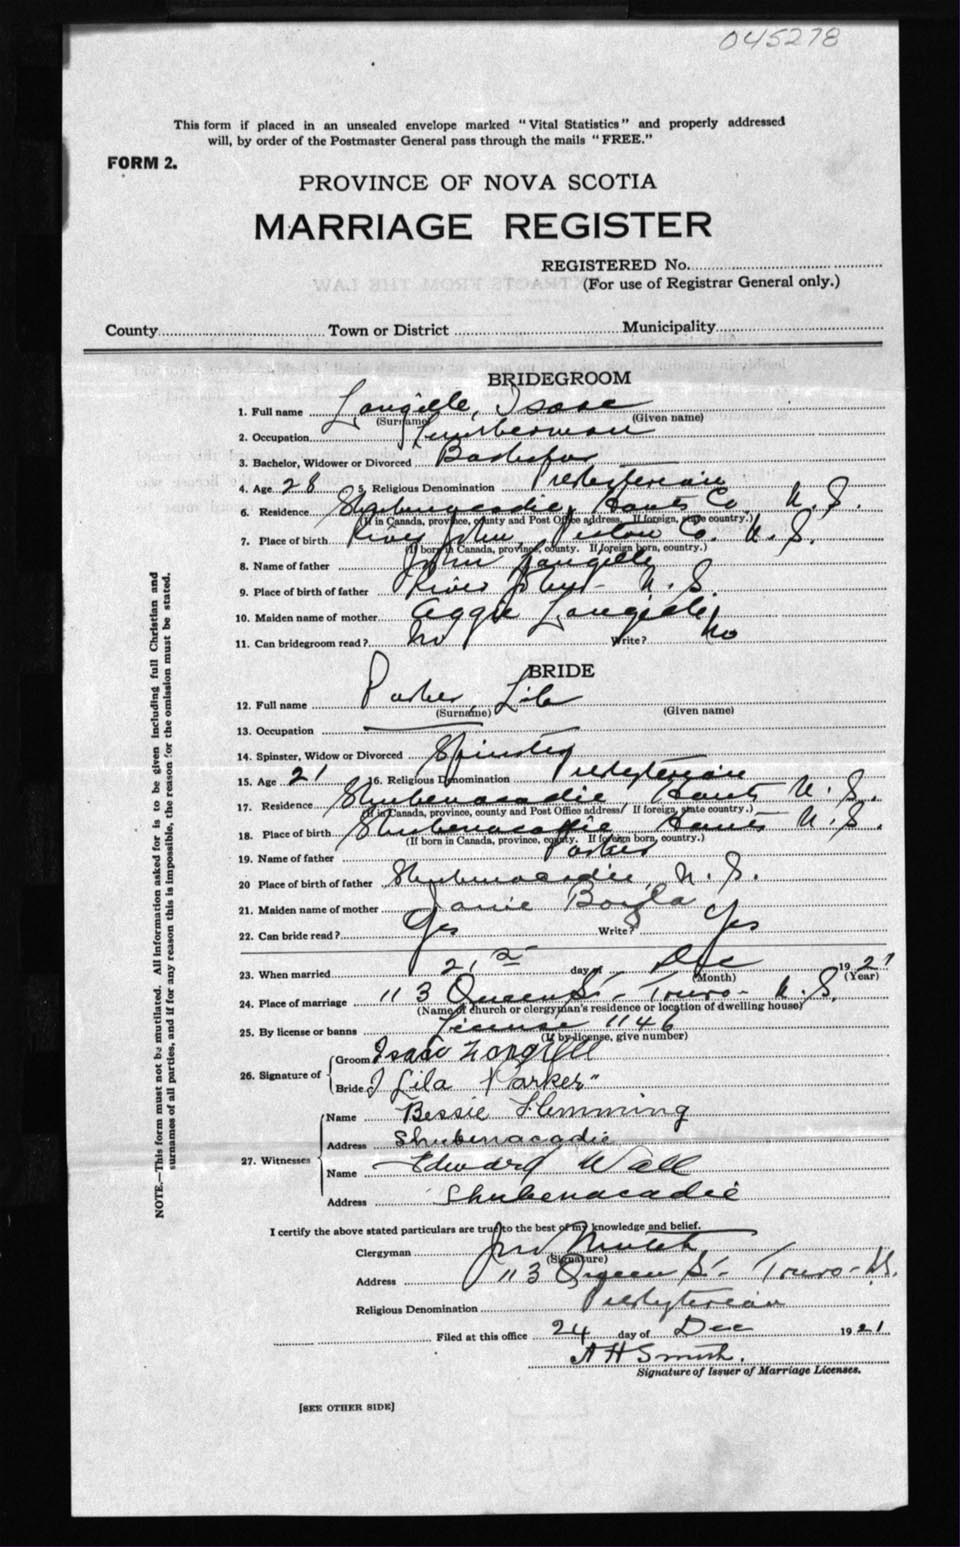 045278
This form if placed in an unsealed envelope marked "Vital Statistics" and properly addressed
will, by order of the Postmaster General pass through the mails "FREE."
FORM 2.
PROVINCE OF NOVA SCOTIA
MARRIAGE REGISTER
REGISTERED No.
(For use of Registrar General only.)
County Town or District Municipality
BRIDEGROOM
1. Full name Langille, Isaac
(Surname) (Given name)
2. Occupation Lumberman
3. Bachelor, Widower or Divorced Bachelor
4. Age 28 5. Religious Denomination Presbyterian
6. Residence Shubenacadie, Hants Co. N. S.
(If in Canada, province, county and Post Office address. If foreign, state country.)
7. Place of birth River John, Pictou Co. N. S.
(If born in Canada, province, county. If foreign born, country.)
8. Name of father John Langille
9. Place of birth of father River John - N. S.
10. Maiden name of mother Aggie Langille
11. Can bridegroom read? No Write? No
BRIDE
12. Full name Parker, Lila
(Surname) (Given name)
13. Occupation
14. Spinster, Widow or Divorced Spinster
15. Age 21 16. Religious Denomination Presbyterian
17. Residence Shubenacadie Hants N. S.
(If in Canada, province, county and Post Office address. If foreign, state country.)
18. Place of birth Shubenacadie Hants N. S.
(If born in Canada, province, county. If foreign born, country.)
19. Name of father Parker
20 Place of birth of father Shubenacadie, N. S.
21. Maiden name of mother Janie
22. Can bride read? Yes Write? Yes
23. When married 21st day of Dec 1921
(Month) (Year)
24. Place of marriage 113 Queen St - Truro - N. S.
(Name of church or clergyman's residence or location of dwelling house)
25. By license or banns License 1146
(If by license, give number)
26. Signature of Groom Isaac Langille
Bride Lila Parker
27. Witnesses Name Bessie Flemming
Address Shubenacadie
Name Edward Wall
Address Shubenacadie
I certify the above stated particulars are true to the best of my knowledge and belief.
Clergyman
(Signature)
Address 113 Queen St - Truro - N.S.
Religious Denomination Presbyterian
Filed at this office 24 day of Dec 1921
A H Smith.
Signature of Issuer of Marriage Licenses.
[SEE OTHER SIDE]
NOTE.—This form must not be mutilated. All information asked for is to be given including full Christian and
surnames of all parties, and if for any reason this is impossible, the reason for the omission must be stated.